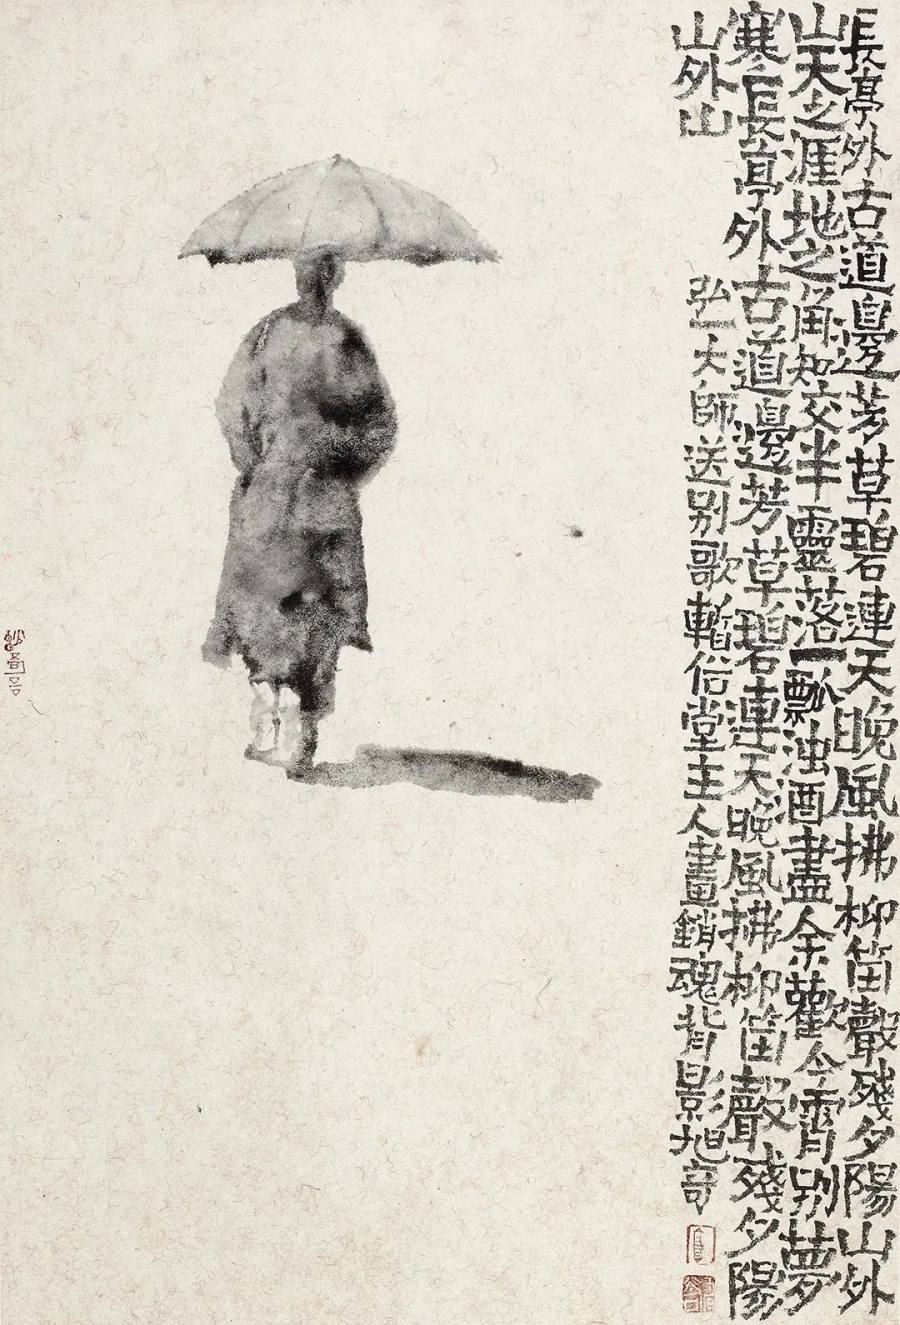 長亭外古道邊芳草碧連天晚風拂柳笛聲殘夕陽山外
山天之涯地之角知交半靈落一瓢浊酒盡余歡今宵别夢
寒長亭外古道邊芳草碧連天晚風拂柳笛聲殘夕陽
山外山 弘一大師送别歌暫俗堂主人畫銷魂背影旭奇